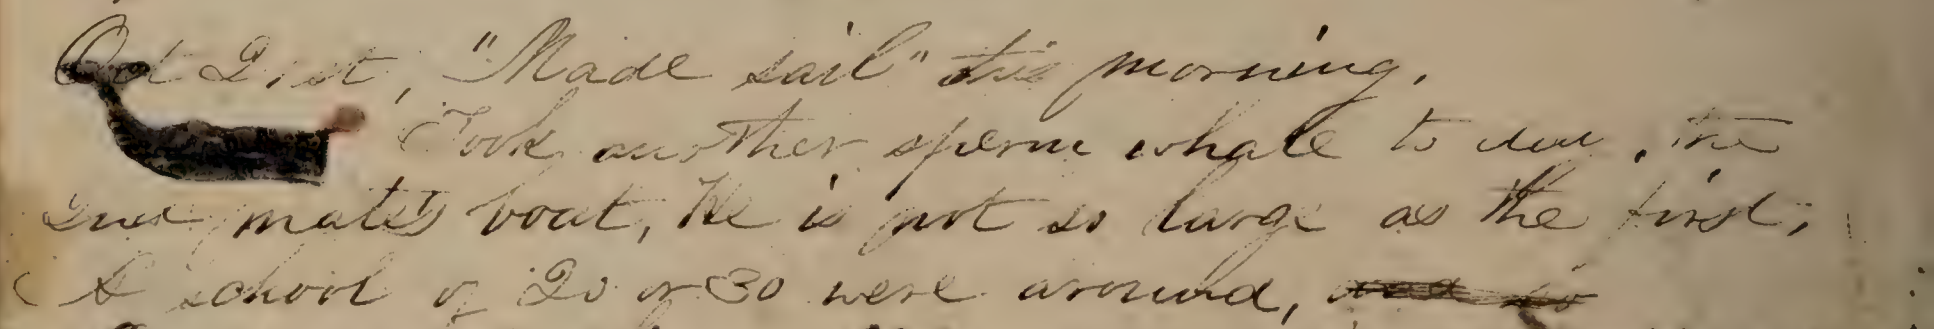 Oct 21st, "Made sail" this morning.
Took another sperm whale to day, the
2nd mate's boat, He is not so large as the first,
A school of 20 or 30 were around,